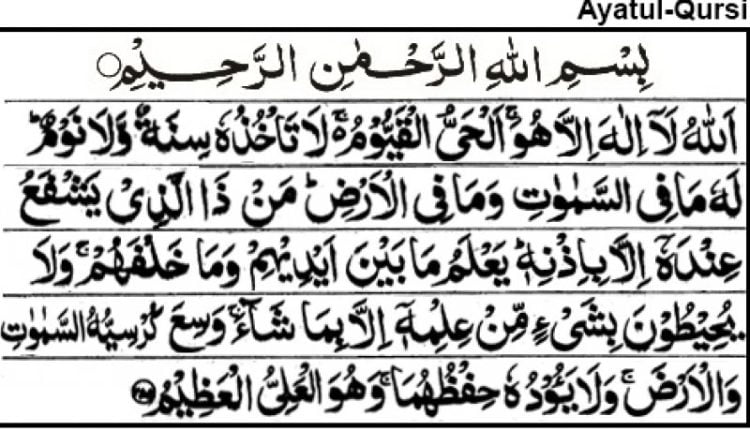 Ayatul-Qursi
بِسْمِ اللهِ الرَّحْمٰنِ الرَّحِيْمِ ○
اَللهُ لَآ اِلٰهَ اِلَّا هُوَ ۚ اَلْحَیُّ الْقَیُّوْمُ ۚ لَا تَاْخُذُهٗ سِنَةٌ وَّلَا نَوْمٌ ؕ
لَهٗ مَا فِی السَّمٰوٰتِ وَمَا فِی الْاَرْضِ ؕ مَنْ ذَا الَّذِیْ یَشْفَعُ
عِنْدَهٗۤ اِلَّا بِاِذْنِهٖ ؕ یَعْلَمُ مَا بَیْنَ اَیْدِیْهِمْ وَمَا خَلْفَهُمْ ۚ وَلَا
یُحِیْطُوْنَ بِشَیْءٍ مِّنْ عِلْمِهٖۤ اِلَّا بِمَا شَآءَ ۚ وَسِعَ كُرْسِیُّهُ السَّمٰوٰتِ
وَالْاَرْضَ ۚ وَلَا یَـُٔوْدُهٗ حِفْظُهُمَا ۚ وَهُوَ الْعَلِیُّ الْعَظِیْمُ ۝۲۵۵